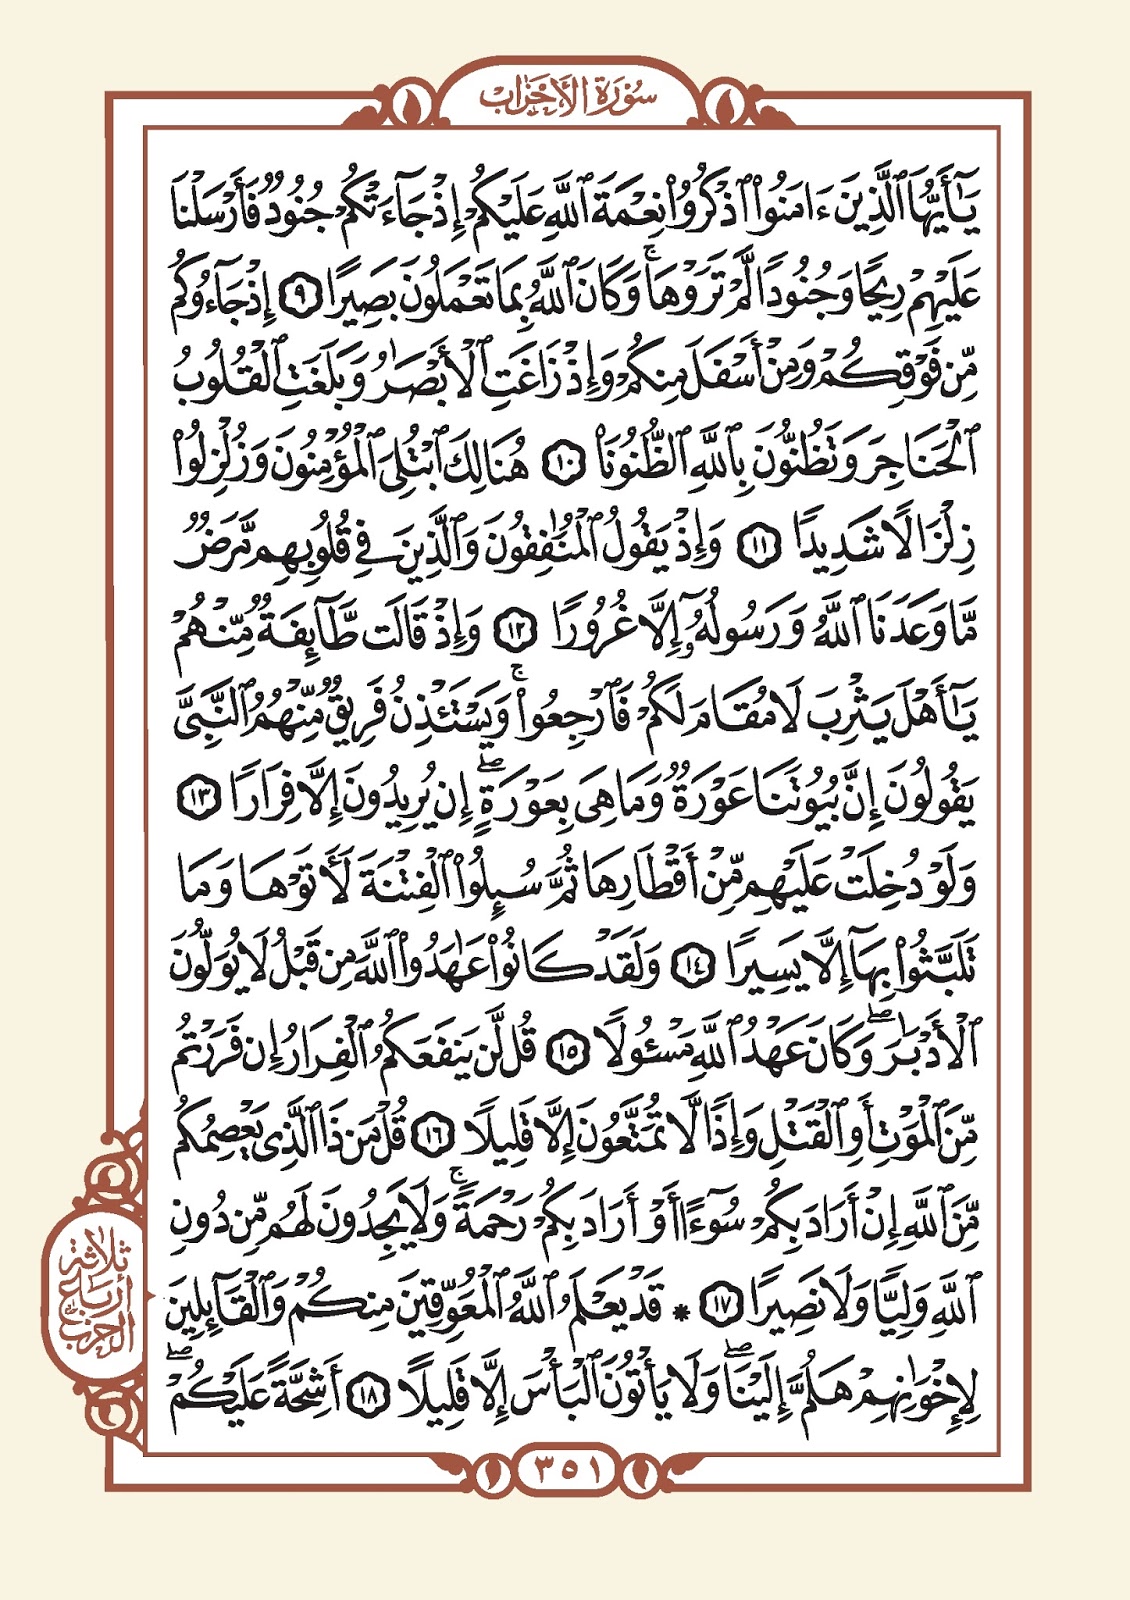 سُورَةُ الأَحْزَاب
يَـٰٓأَيُّهَا ٱلَّذِينَ ءَامَنُوا۟ ٱذْكُرُوا۟ نِعْمَةَ ٱللَّهِ عَلَيْكُمْ إِذْ جَآءَتْكُمْ جُنُودٌ فَأَرْسَلْنَا
عَلَيْهِمْ رِيحًا وَجُنُودًا لَّمْ تَرَوْهَا ۚ وَكَانَ ٱللَّهُ بِمَا تَعْمَلُونَ بَصِيرًا ٩ إِذْ جَآءُوكُم
مِّن فَوْقِكُمْ وَمِنْ أَسْفَلَ مِنكُمْ وَإِذْ زَاغَتِ ٱلْأَبْصَـٰرُ وَبَلَغَتِ ٱلْقُلُوبُ
ٱلْحَنَاجِرَ وَتَظُنُّونَ بِٱللَّهِ ٱلظُّنُونَا۠ ١٠ هُنَالِكَ ٱبْتُلِىَ ٱلْمُؤْمِنُونَ وَزُلْزِلُوا۟
زِلْزَالًا شَدِيدًا ١١ وَإِذْ يَقُولُ ٱلْمُنَـٰفِقُونَ وَٱلَّذِينَ فِى قُلُوبِهِم مَّرَضٌ
مَّا وَعَدَنَا ٱللَّهُ وَرَسُولُهُۥٓ إِلَّا غُرُورًا ١٢ وَإِذْ قَالَت طَّآئِفَةٌ مِّنْهُمْ
يَـٰٓأَهْلَ يَثْرِبَ لَا مُقَامَ لَكُمْ فَٱرْجِعُوا۟ ۚ وَيَسْتَـْٔذِنُ فَرِيقٌ مِّنْهُمُ ٱلنَّبِىَّ
يَقُولُونَ إِنَّ بُيُوتَنَا عَوْرَةٌ وَمَا هِىَ بِعَوْرَةٍ ۖ إِن يُرِيدُونَ إِلَّا فِرَارًا ١٣
وَلَوْ دُخِلَتْ عَلَيْهِم مِّنْ أَقْطَارِهَا ثُمَّ سُئِلُوا۟ ٱلْفِتْنَةَ لَـَٔاتَوْهَا وَمَا
تَلَبَّثُوا۟ بِهَآ إِلَّا يَسِيرًا ١٤ وَلَقَدْ كَانُوا۟ عَـٰهَدُوا۟ ٱللَّهَ مِن قَبْلُ لَا يُوَلُّونَ
ٱلْأَدْبَـٰرَ ۖ وَكَانَ عَهْدُ ٱللَّهِ مَسْـُٔولًا ١٥ قُل لَّن يَنفَعَكُمُ ٱلْفِرَارُ إِن فَرَرْتُم
مِّنَ ٱلْمَوْتِ أَوِ ٱلْقَتْلِ وَإِذًا لَّا تُمَتَّعُونَ إِلَّا قَلِيلًا ١٦ قُلْ مَن ذَا ٱلَّذِى يَعْصِمُكُم
مِّنَ ٱللَّهِ إِنْ أَرَادَ بِكُمْ سُوٓءًا أَوْ أَرَادَ بِكُمْ رَحْمَةً ۚ وَلَا يَجِدُونَ لَهُم مِّن دُونِ
ٱللَّهِ وَلِيًّا وَلَا نَصِيرًا ١٧ * قَدْ يَعْلَمُ ٱللَّهُ ٱلْمُعَوِّقِينَ مِنكُمْ وَٱلْقَآئِلِينَ
لِإِخْوَٰنِهِمْ هَلُمَّ إِلَيْنَا ۖ وَلَا يَأْتُونَ ٱلْبَأْسَ إِلَّا قَلِيلًا ١٨ أَشِحَّةً عَلَيْكُمْ ۖ
ثلاثة
أرباع
الحزب
٣٥١